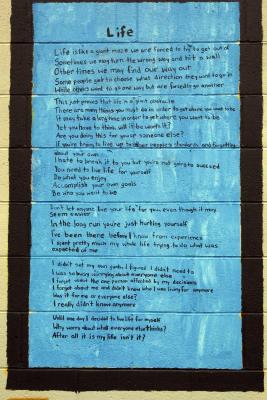 Life
Life is like a giant maze we are forced to try to get out of
Sometimes we may turn the wrong way and hit a wall
Other times we may find our way out
Some people get to choose what direction they want to go in
While others want to go one way but are forced to go another
This just proves that life is a giant obstacle
There are many things you must do in order to get where you want to be
It may take a long time in order to get where you want to be
Yet you have to think, will it be worth it?
Are you doing this for you or someone else?
If you're trying to live up to other people's standards and forgetting
about your own
I hate to break it to you but you're not going to succeed
You need to live life for yourself
Do what you enjoy
Accomplish your own goals
Be who you want to be
Don't let anyone live your life for you even though it may
Seem easier
In the long run you're just hurting yourself
I've been there before I know from experience
I spent pretty much my whole life trying to do what was
expected of me
I didn't set my own path I figured I didn't need to
I was to busy worrying about everyone else
I forgot about the one person affected by my decisions
I forgot about me and didn't know who I was living for anymore
Was it for me or everyone else?
I really didn't know anymore
Until one day I decided to live life for myself
Why worry about what everyone else thinks?
After all it is my life isn't it?